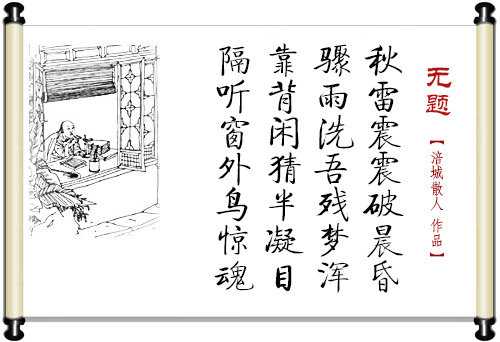 无题
【涪城散人 作品】
秋雷震震破晨昏
骤雨洗吾残梦浑
靠背闲猜半凝目
隔听窗外鸟惊魂